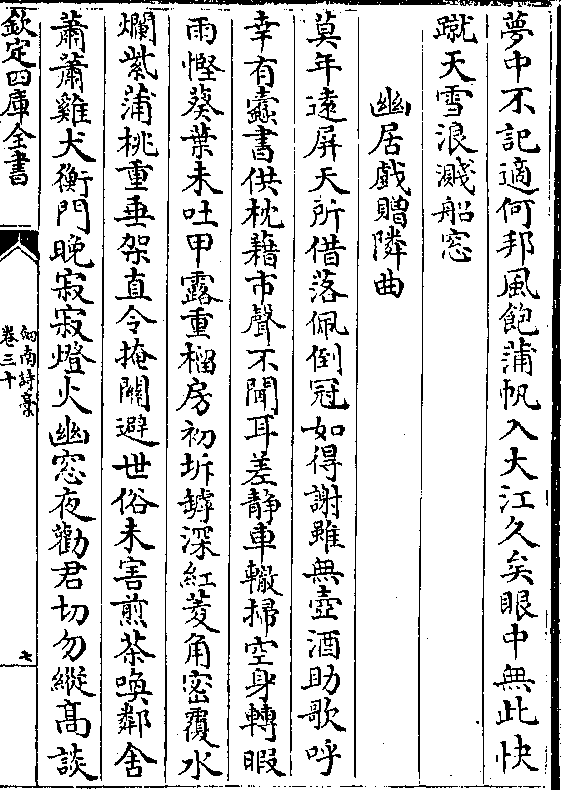 夢中不記適何邦風飽蒲帆入大江久矣眼中無此快
蹴天雪浪濺船窓
幽居戲贈隣曲
莫年遠屏天所借落佩倒冠如得謝雖無壺酒助歌呼
幸有蠧書供枕藉市聲不聞耳差静車轍掃空身轉暇
雨慳葵葉未吐甲露重榴房初坼罅深紅菱角密覆水
爛紫蒲桃重垂架直令掩關避世俗未害煎茶喚鄰舍
蕭蕭雞犬衡門晚寂寂燈火幽窓夜勸君切勿縱髙談
欽定四庫全書
劒南詩稾
卷三十
七